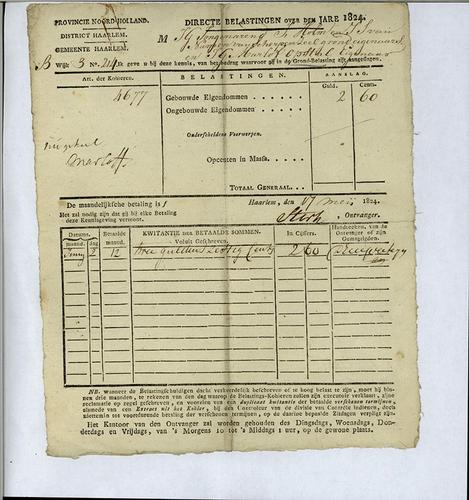 PROVINCIE NOORD-HOLLAND.
DISTRICT HAARLEM.
GEMEENTE HAARLEM.
DIRECTE BELASTINGEN OVER DEN JARE 1824.
B Wijk 3 No. 244 Ik geve u bij deze kennis, van het bedrag waarvoor gij in de Grond-Belasting zijt aangeslagen.
Art. der Kohieren.
BELASTINGEN.
AANSLAG.
Guld. Cents
4677
Gebouwde Eigendommen 2 60
Ongebouwde Eigendommen
Onderscheidene Voorwerpen.
Opcenten in Massa.
TOTAAL GENERAAL
De maandelijksche betaling is f
Met zal nodig zijn dat gij bij elke Betaling
deze Kennisgeving vertoont.
Haarlem, den 17 Mei 1824.
Ontvanger.
Datums.
maand. dag
Betaalde
maand.
KWITANTIE VAN BETAALDE SOMMEN.
Voluit Geschreven.
In Cijfers.
Handteeken. van de
Ontvanger of zijn
Gemagtigden.
12 twee guldens zestig Cents 2 60
NB. wanneer de Belastingschuldigen dachte verkeerdelijk beschreven of te hoog belast te zijn, moet hij binnen
drie maanden, te rekenen van den dag waarop de Belastings-Kohieren zullen executoir verklaart, zijne
reclamatie op zegel geschreven, en voorzien van een duplicaat kwitantie der betaalde verschenen termijnen,
alsmede van een Extract uit het Kohier, bij den Controleur van de divisie van Controle indienen, doch
niettemin tot voortdurende betaling der verschenen termijnen, op de daartoe bepaalde Zitdagen verpligt zijn.
Het Kantoor van den Ontvanger zal worden gehouden des Dingsdags, Woensdags, Don-
derdags en Vrijdags, van 's Morgens 10 tot 's Middags 1 uur, op de gewone plaats.